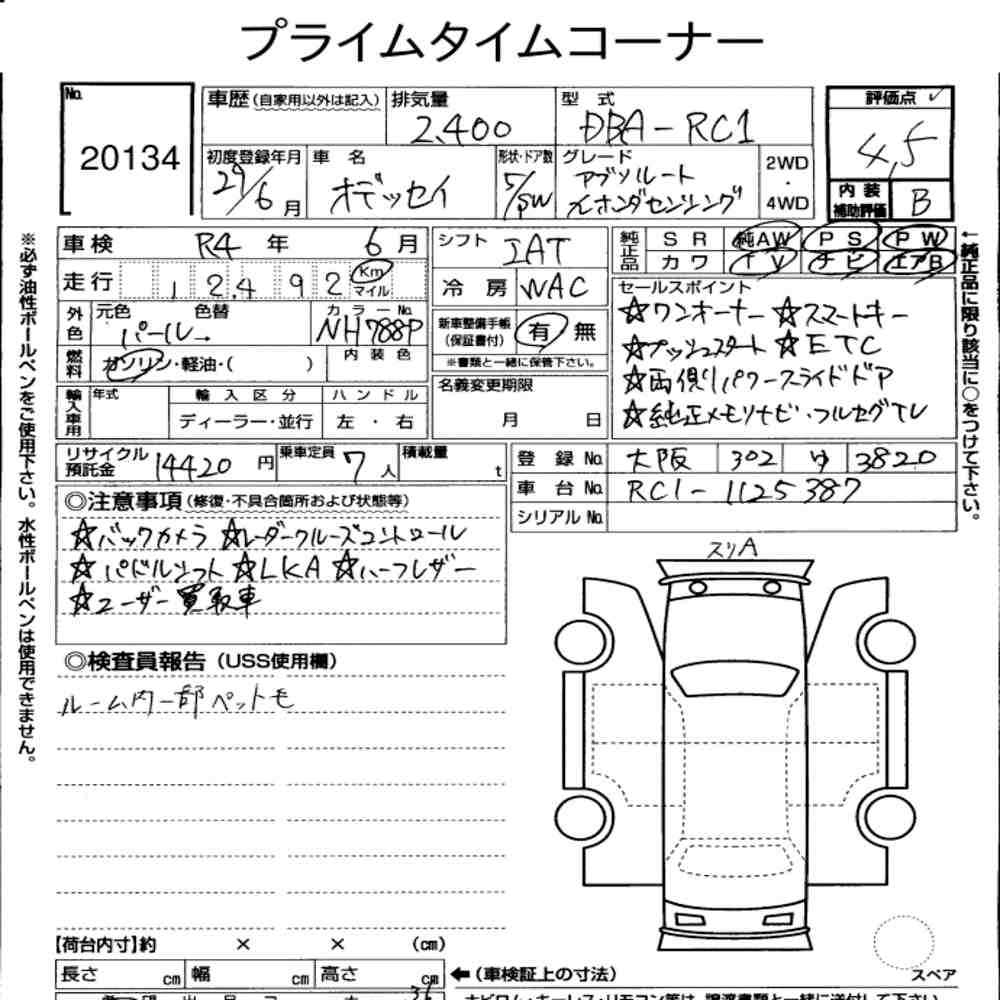 プライムタイムコーナー
No. 20134
車歴(自家用以外は記入)
排気量 2,400
型式 DBA-RC1
評価点 ✓ 4,5
内装補助評価 B
初度登録年月 29/6月
車名 オデッセイ
形状・ドア数 5/SW
グレード アブソルート
ホンダセンシング
2WD・4WD
車検 R4年 6月
走行 12492 Km マイル
シフト IAT
冷房 WAC
純正品 SR 純AW PS PW
カワ TV ナビ エアB
外色 元色 色替 パール
カラーNo. NH788P
燃料 ガソリン・軽油・( )
内装色
新車整備手帳(保証書付) 有 無
※書類と一緒に保管下さい。
セールスポイント
☆ワンオーナー ☆スマートキー
☆プッシュスタート ☆ETC
☆両側パワースライドドア
☆純正メモリナビ・フルセグTV
輸入車用 年式 輸入区分 ハンドル
ディーラー・並行 左・右
名義変更期限
月 日
リサイクル預託金 14420円
乗車定員 7人
積載量 t
登録No. 大阪 302 ゆ 3820
車台No. RC1-1125387
シリアルNo.
◎注意事項(修復・不具合箇所および状態等)
☆バックカメラ ☆レーダークルーズコントロール
☆パドルシフト ☆LKA ☆ハーフレザー
☆ユーザー買取車
◎検査員報告(USS使用欄)
ルーム内一部ペットモ
スリA
※必ず油性ボールペンをご使用下さい。水性ボールペンは使用できません。
←純正品に限り該当に○をつけて下さい。
【荷台内寸】約 × × (cm)
長さ cm 幅 cm 高さ cm
←(車検証上の寸法)
スペア